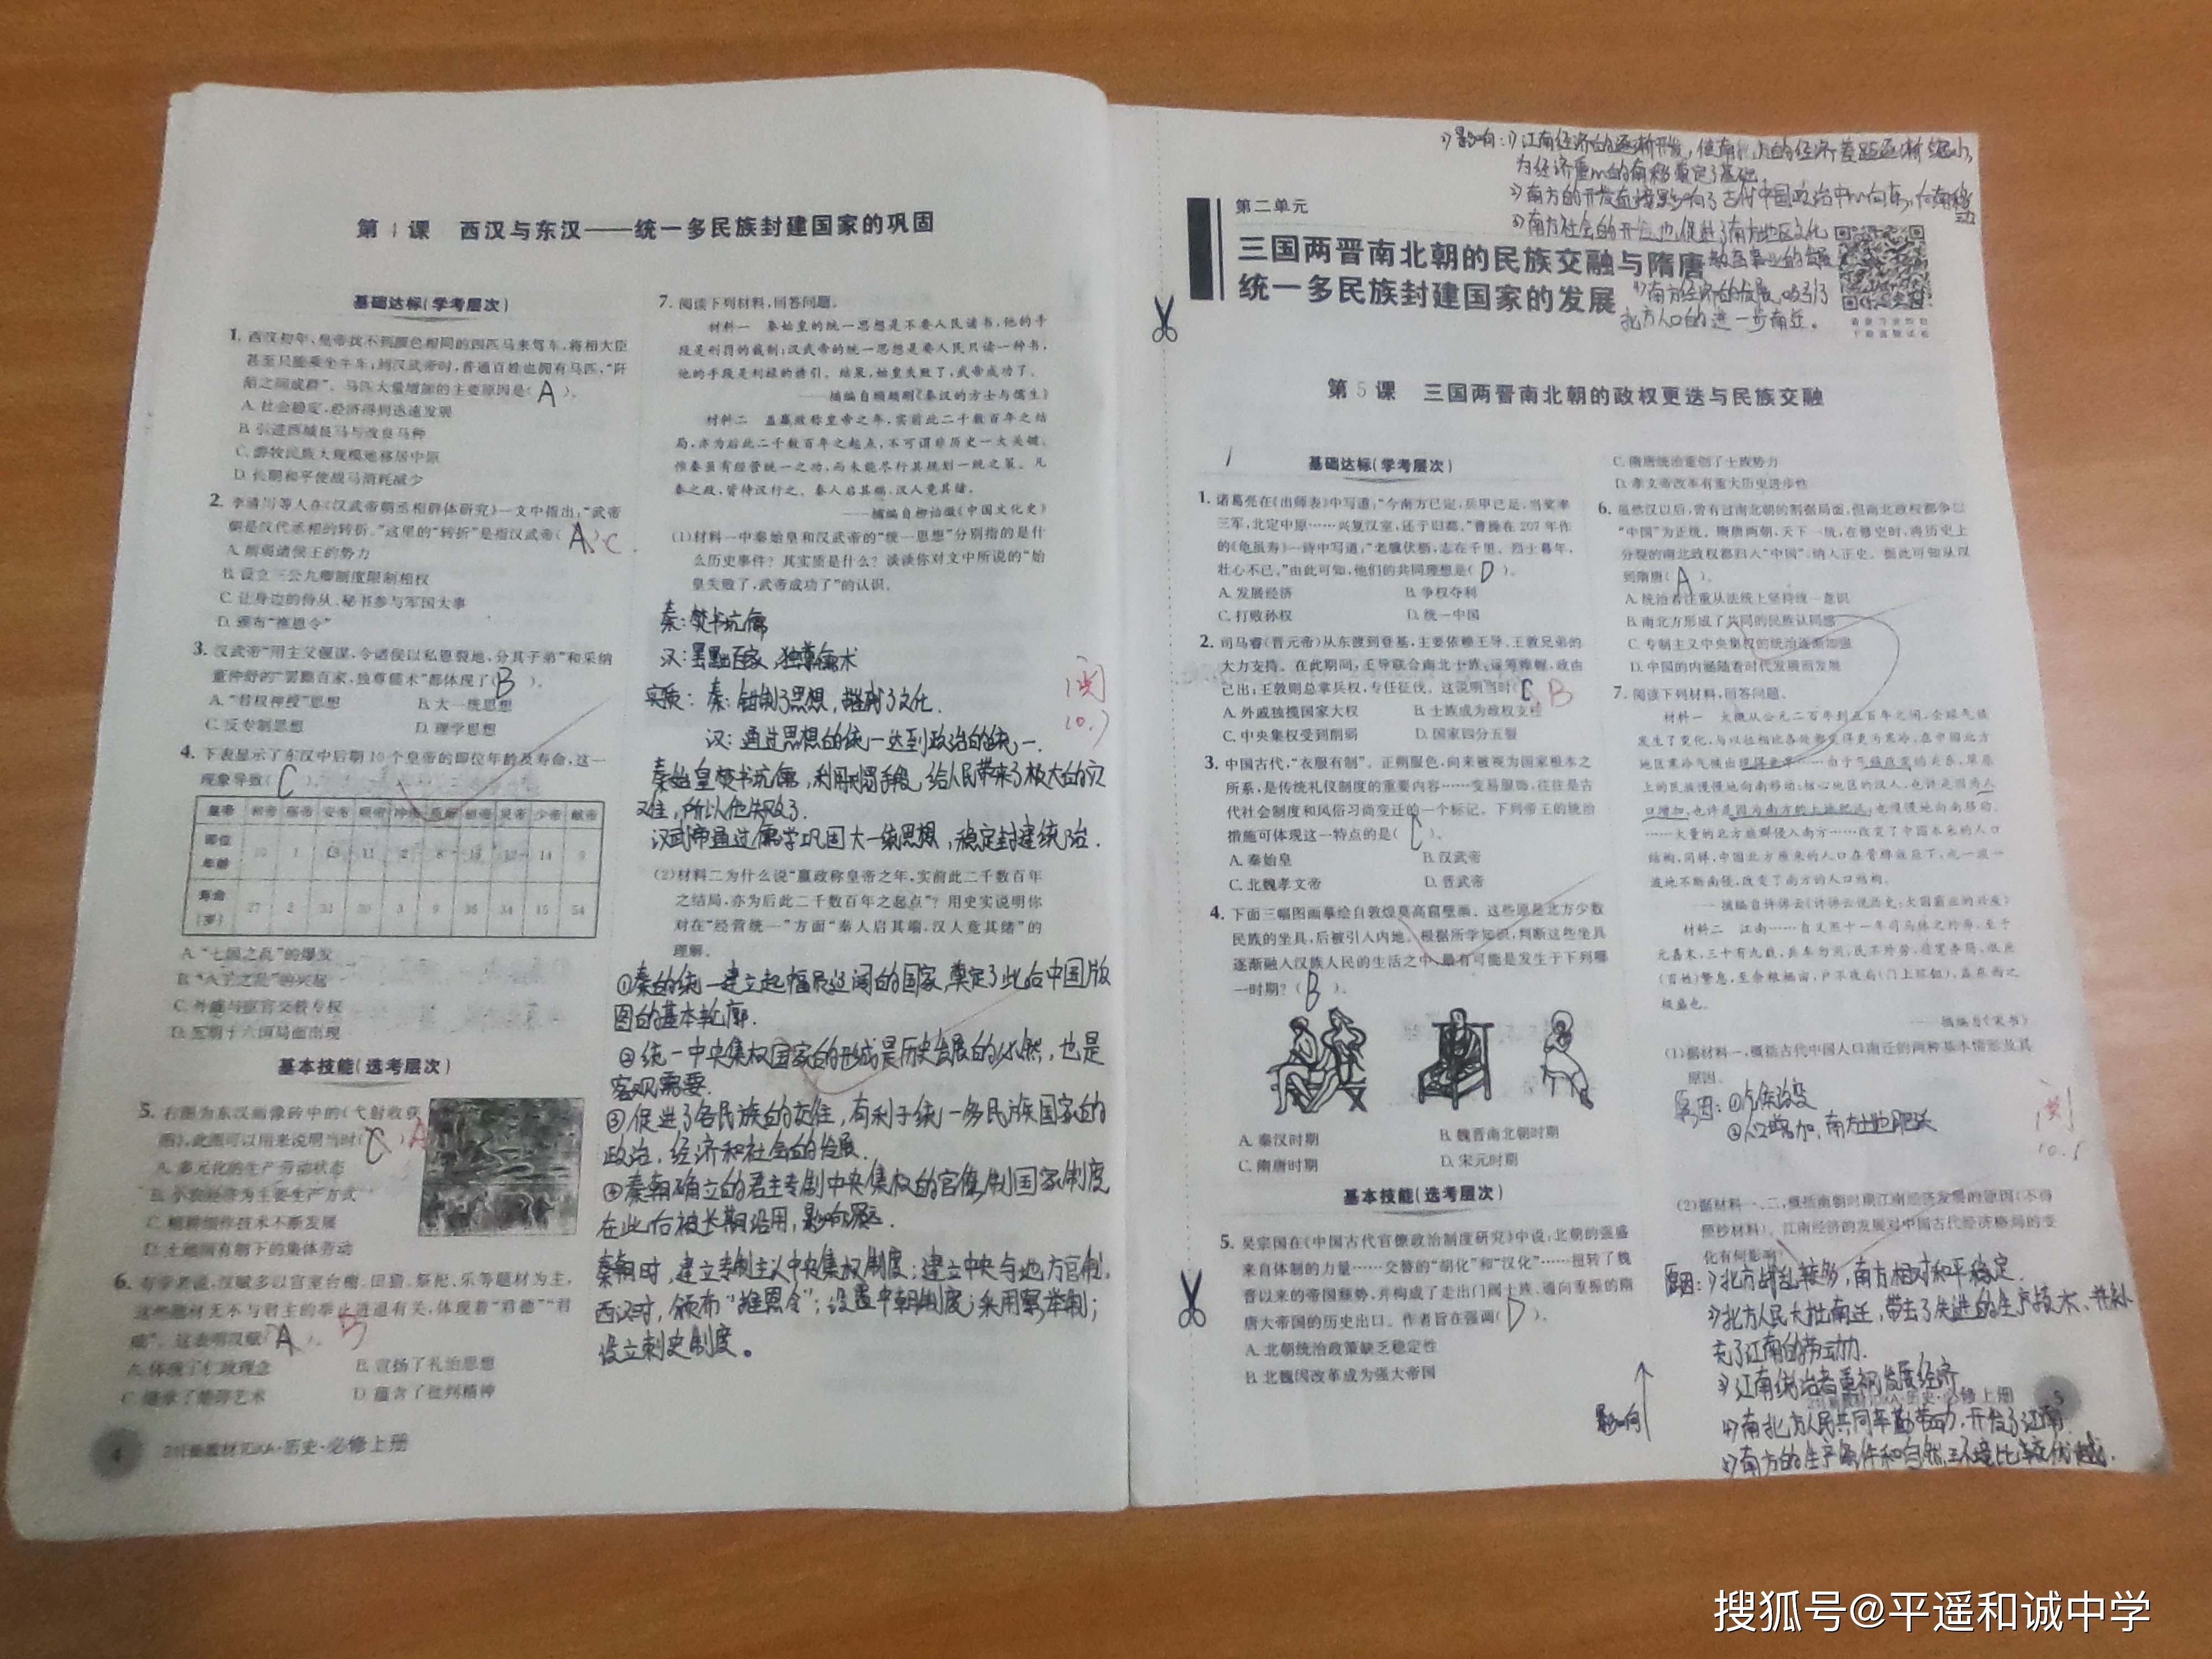 第4课 西汉与东汉——统一多民族封建国家的巩固
基础达标(学考层次)
1. 西汉初年,皇帝找不到颜色相同的四匹马来驾车,将相大臣
甚至只能乘坐牛车;到汉武帝时,普通百姓也拥有马匹,“阡
陌之间成群”。马匹大量增加的主要原因是( A )。
A. 社会稳定,经济得到迅速发展
B. 引进西域良马与改良马种
C. 游牧民族大规模地移居中原
D. 长期和平使战马消耗减少
2. 李清等人在《汉武帝朝丞相群体研究》一文中指出:“武帝
朝是汉代丞相的转折。”这里的“转折”是指汉武帝( A C
A. 削弱诸侯王的势力
B. 设立三公九卿制度限制相权
C. 让身边的侍从、秘书参与军国大事
D. 颁布“推恩令”
3. 汉武帝“用主父偃谋,令诸侯以私恩裂地,分其子弟”和采纳
董仲舒的“罢黜百家,独尊儒术”都体现了( B )。
A. “君权神授”思想 B. 大一统思想
C. 反专制思想 D. 理学思想
4. 下表显示了东汉中后期10个皇帝的即位年龄及寿命,这一
现象导致( C )。
皇帝 和帝 殇帝 安帝 顺帝 冲帝 质帝 桓帝 灵帝 少帝 献帝
即位年龄 10 1 13 11 2 8 15 12 14 9
寿命(岁) 27 2 32 30 3 9 36 34 15 54
A. “七国之乱”的爆发
B. “八王之乱”的兴起
C. 外戚与宦官交替专权
D. 五胡十六国局面出现
基本技能(选考层次)
5. 右图为东汉画像砖中的《弋射收获
图》,此图可以用来说明当时( C ) A
A. 多元化的生产劳动状态
B. 小农经济为主要生产方式
C. 精耕细作技术不断发展
D. 土地国有制下的集体劳动
6. 有学者说,汉赋多以宫室台榭、田猎、祭祀、乐等题材为主,
这些题材无不与君主的举止进退有关,体现着“君德”“君
”。这表明汉赋( A )。 B
A. 体现了仁政理念 B. 宣扬了礼治思想
C. 继承了楚辞艺术 D. 蕴含了批判精神
4 历史·必修上册
7. 阅读下列材料,回答问题。
材料一 秦始皇的统一思想是不要人民读书,他的手
段是刑罚的裁制;汉武帝的统一思想是要人民只读一种书,
他的手段是利禄的诱引。结果,始皇失败了,武帝成功了。
——摘编自顾颉刚《秦汉的方士与儒生》
材料二 盖嬴政称皇帝之年,实前此二千数百年之结
局,亦为后此二千数百年之起点,不可谓非历史一大关键。
惟秦虽有经营统一之功,而未能尽行其规划一统之策。凡
秦之政,皆待汉行之。秦人启其端,汉人竟其绪。
——摘编自柳诒徵《中国文化史》
(1)材料一中秦始皇和汉武帝的“统一思想”分别指的是什
么历史事件?其实质是什么?谈谈你对文中所说的“始
皇失败了,武帝成功了”的认识。
秦:焚书坑儒
汉:罢黜百家,独尊儒术
实质:秦:钳制了思想,摧残了文化.
汉:通过思想的统一达到政治的统一.
秦始皇焚书坑儒,利用刑罚手段,给人民带来了极大的灾
难,所以他失败了.
汉武帝通过儒学巩固大一统思想,稳定封建统治.
阅
10.7
(2)材料二为什么说“嬴政称皇帝之年,实前此二千数百年
之结局,亦为后此二千数百年之起点”?用史实说明你
对在“经营统一”方面“秦人启其端,汉人竟其绪”的
理解。
①秦的统一建立起幅员辽阔的国家,奠定了此后中国版
图的基本轮廓.
②统一中央集权国家的形成是历史发展的必然,也是
客观需要.
③促进了各民族的交往,有利于统一多民族国家的
政治,经济和社会的发展.
④秦朝确立的君主专制中央集权的官僚制国家制度
在此后被长期沿用,影响深远.
秦朝时,建立专制主义中央集权制度;建立中央与地方官制.
西汉时,颁布“推恩令”;设置中朝制度;采用察举制;
设立刺史制度。
2)影响:1)江南经济的逐渐开发,使南北方的经济差距逐渐缩小,
为经济重心的南移奠定了基础.
2)南方的开发直接影响了古代中国政治中心向东,向南移
动
3)南方社会的开发也促进了南方地区文化
教育事业的发展
4)南方经济的发展,吸引了
北方人口的进一步南迁。
第二单元
三国两晋南北朝的民族交融与隋唐
统一多民族封建国家的发展
第5课 三国两晋南北朝的政权更迭与民族交融
基础达标(学考层次)
1. 诸葛亮在《出师表》中写道:“今南方已定,兵甲已足,当奖率
三军,北定中原……兴复汉室,还于旧都。”曹操在207年作
的《龟虽寿》一诗中写道:“老骥伏枥,志在千里。烈士暮年,
壮心不已。”由此可知,他们的共同理想是( D )。
A. 发展经济 B. 争权夺利
C. 打败孙权 D. 统一中国
2. 司马睿(晋元帝)从东渡到登基,主要依赖王导、王敦兄弟的
大力支持。在此期间,王导联合南北士族,运筹帷幄,政由
己出;王敦则总掌兵权,专任征伐。这说明当时( C B
A. 外戚独揽国家大权 B. 士族成为政权支柱
C. 中央集权受到削弱 D. 国家四分五裂
3. 中国古代,“衣服有制”。正朔服色,向来被视为国家根本之
所系,是传统礼仪制度的重要内容……变易服饰,往往是古
代社会制度和风俗习尚变迁的一个标记。下列帝王的统治
措施可体现这一特点的是( C )。
A. 秦始皇 B. 汉武帝
C. 北魏孝文帝 D. 晋武帝
4. 下面三幅图画摹绘自敦煌莫高窟壁画。这些原是北方少数
民族的坐具,后被引入内地。根据所学知识,判断这些坐具
逐渐融入汉族人民的生活之中,最有可能是发生于下列哪
一时期?( B )。
A. 秦汉时期 B. 魏晋南北朝时期
C. 隋唐时期 D. 宋元时期
基本技能(选考层次)
5. 吴宗国在《中国古代官僚政治制度研究》中说:北朝的强盛
来自体制的力量……交替的“胡化”和“汉化”……扭转了魏
晋以来的帝国颓势,并构成了走出门阀士族、通向重振的隋
唐大帝国的历史出口。作者旨在强调( D )。
A. 北朝统治政策缺乏稳定性
B. 北魏因改革成为强大帝国
影响
C. 隋唐统治重创了士族势力
D. 孝文帝改革有重大历史进步性
6. 虽然汉以后,曾有过南北朝的割据局面,但南北政权都争以
“中国”为正统。隋唐两朝,天下一统,在修史时,将历史上
分裂的南北政权都归入“中国”,纳入正史。据此可知从汉
到隋唐( A )。
A. 统治者注重从法统上坚持统一意识
B. 南北方形成了共同的民族认同感
C. 专制主义中央集权的统治逐渐加强
D. 中国的内涵随着时代发展而发展
7. 阅读下列材料,回答问题。
材料一 大概从公元二百年到五百年之间,全球气候
发生了变化,与以往相比各处都变得更为寒冷,在中国北方
地区寒冷气候出现得更早……由于气候改变的关系,草原
上的民族慢慢地向南移动;核心地区的汉人,也许是因为人
口增加,也许是因为南方的土地肥沃,也慢慢地向南移动。
……大量的北方族群侵入南方……改变了中国本来的人口
结构,同样,中国北方原来的人口在骨牌效应下,也一波一
波地不断南侵,改变了南方的人口结构。
——摘编自许倬云《许倬云说历史:大国霸业的兴废》
材料二 江南……自义熙十一年司马休之外奔,至于
元嘉末,三十有九载,兵车勿用,民不外劳,役宽务简,氓庶
(百姓)繁息,至余粮栖亩,户不夜扃(门上环钮),盖东西之
极盛也。
——摘编自《宋书》
(1)据材料一,概括古代中国人口南迁的两种基本情形及其
原因。
原因:①气候改变
②人口增加,南方土地肥沃
阅
10.
(2)据材料一、二,概括南朝时期江南经济发展的原因(不得
照抄材料)。江南经济的发展对中国古代经济格局的变
化有何影响
原因:1)北方战乱较多,南方相对和平稳定.
2)北方人民大批南迁,带去了先进的生产技术、并补
充了江南的劳动力.
3)江南统治者重视发展经济
4)南北方人民共同辛勤劳动,开发了江南
5)南方的生产条件和自然环境比较优越.
历史·必修上册 5
搜狐号@平遥和诚中学